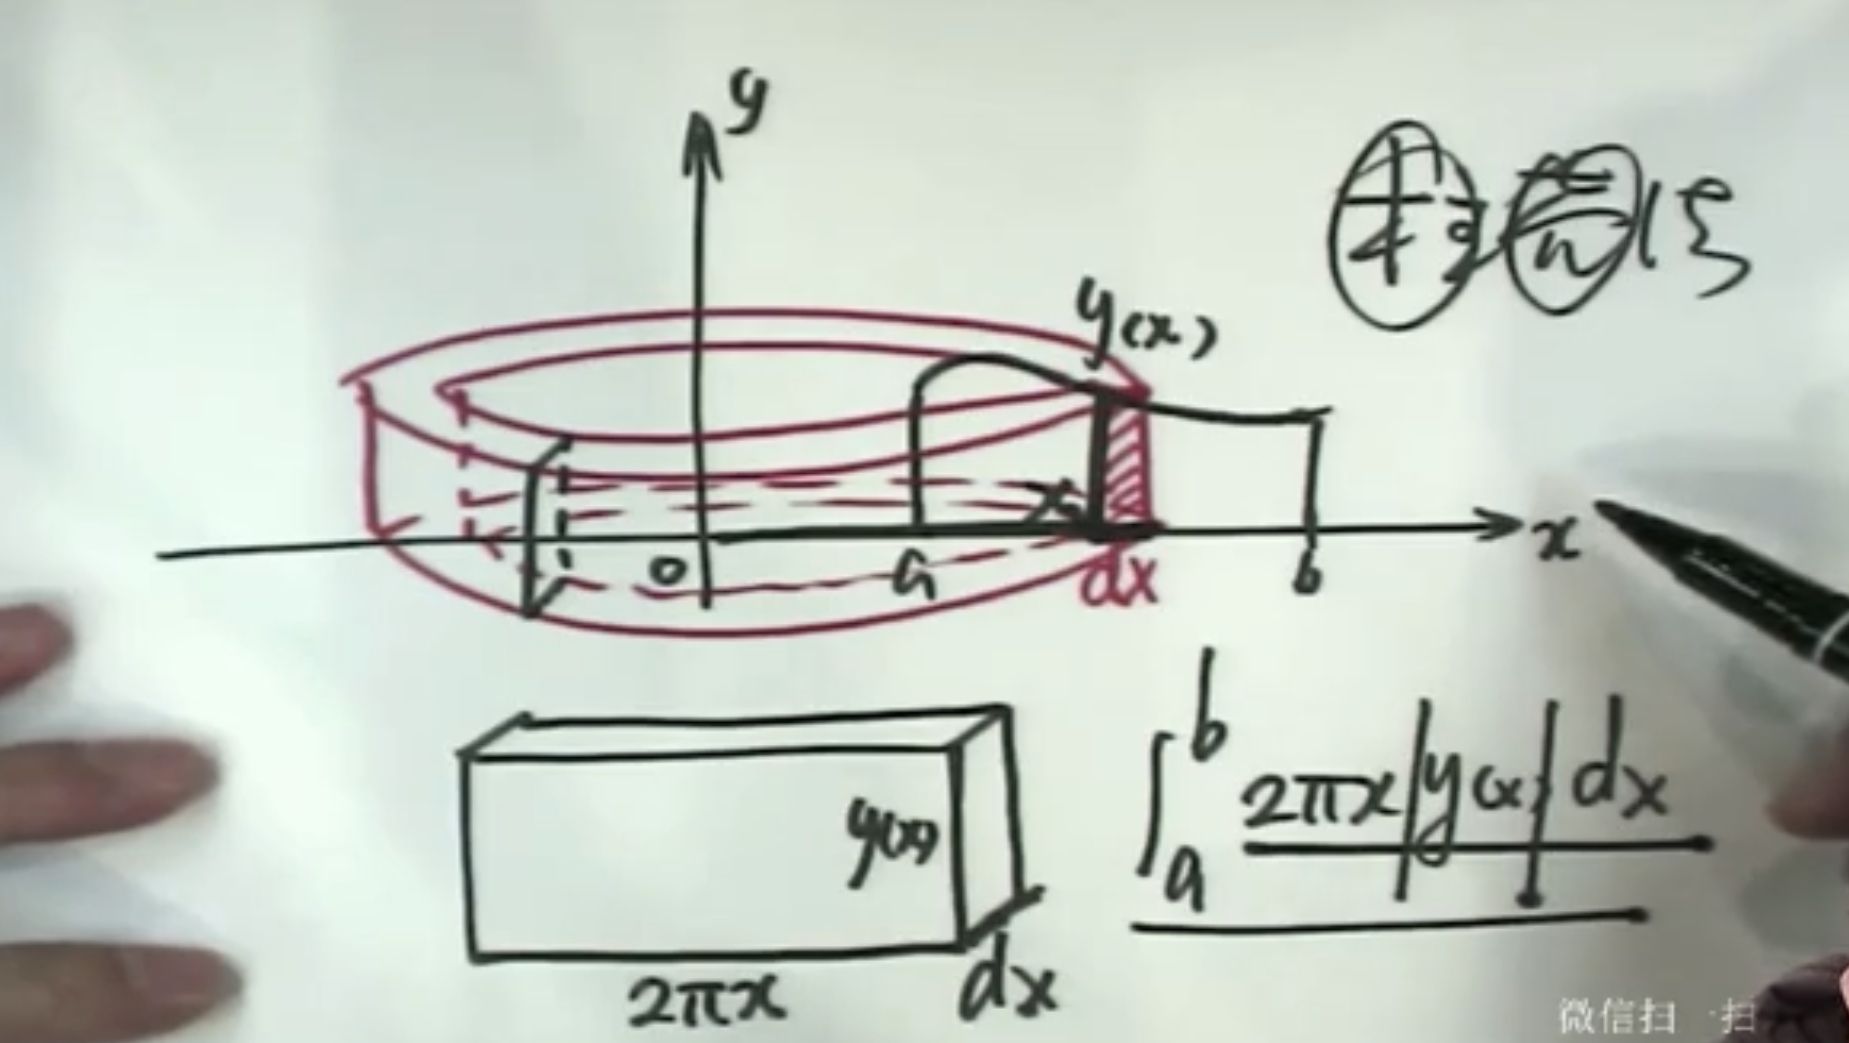 y
y(x)
x
o
a
dx
b
x
y(x)
2πx
dx
∫_a^b 2πx|y(x)|dx
微信扫一扫